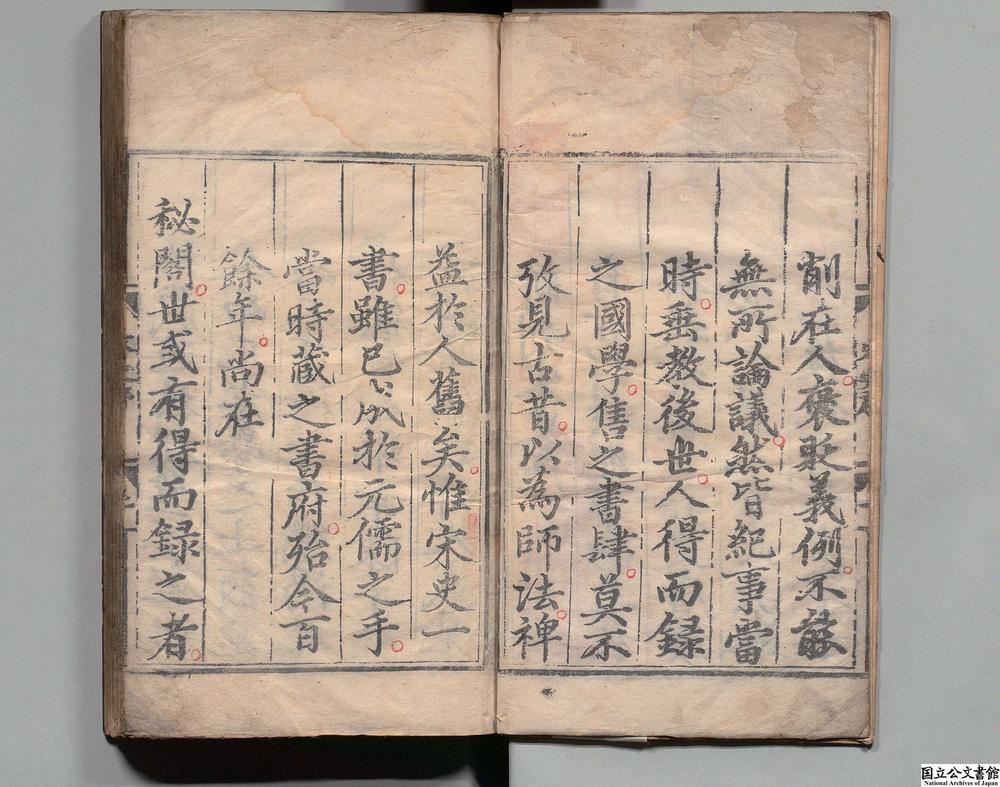 削在人褒貶義例不能
無所論議然皆紀事當
時垂教後世人得而録
之國學售之書肆莫不
攷見古昔以為師法裨
益於人舊矣惟宋史一
書雖已成於元儒之手
當時蔵之書府殆今百
餘年尚在
秘閣世或有得而録之者
国立公文書館
National Archives of Japan